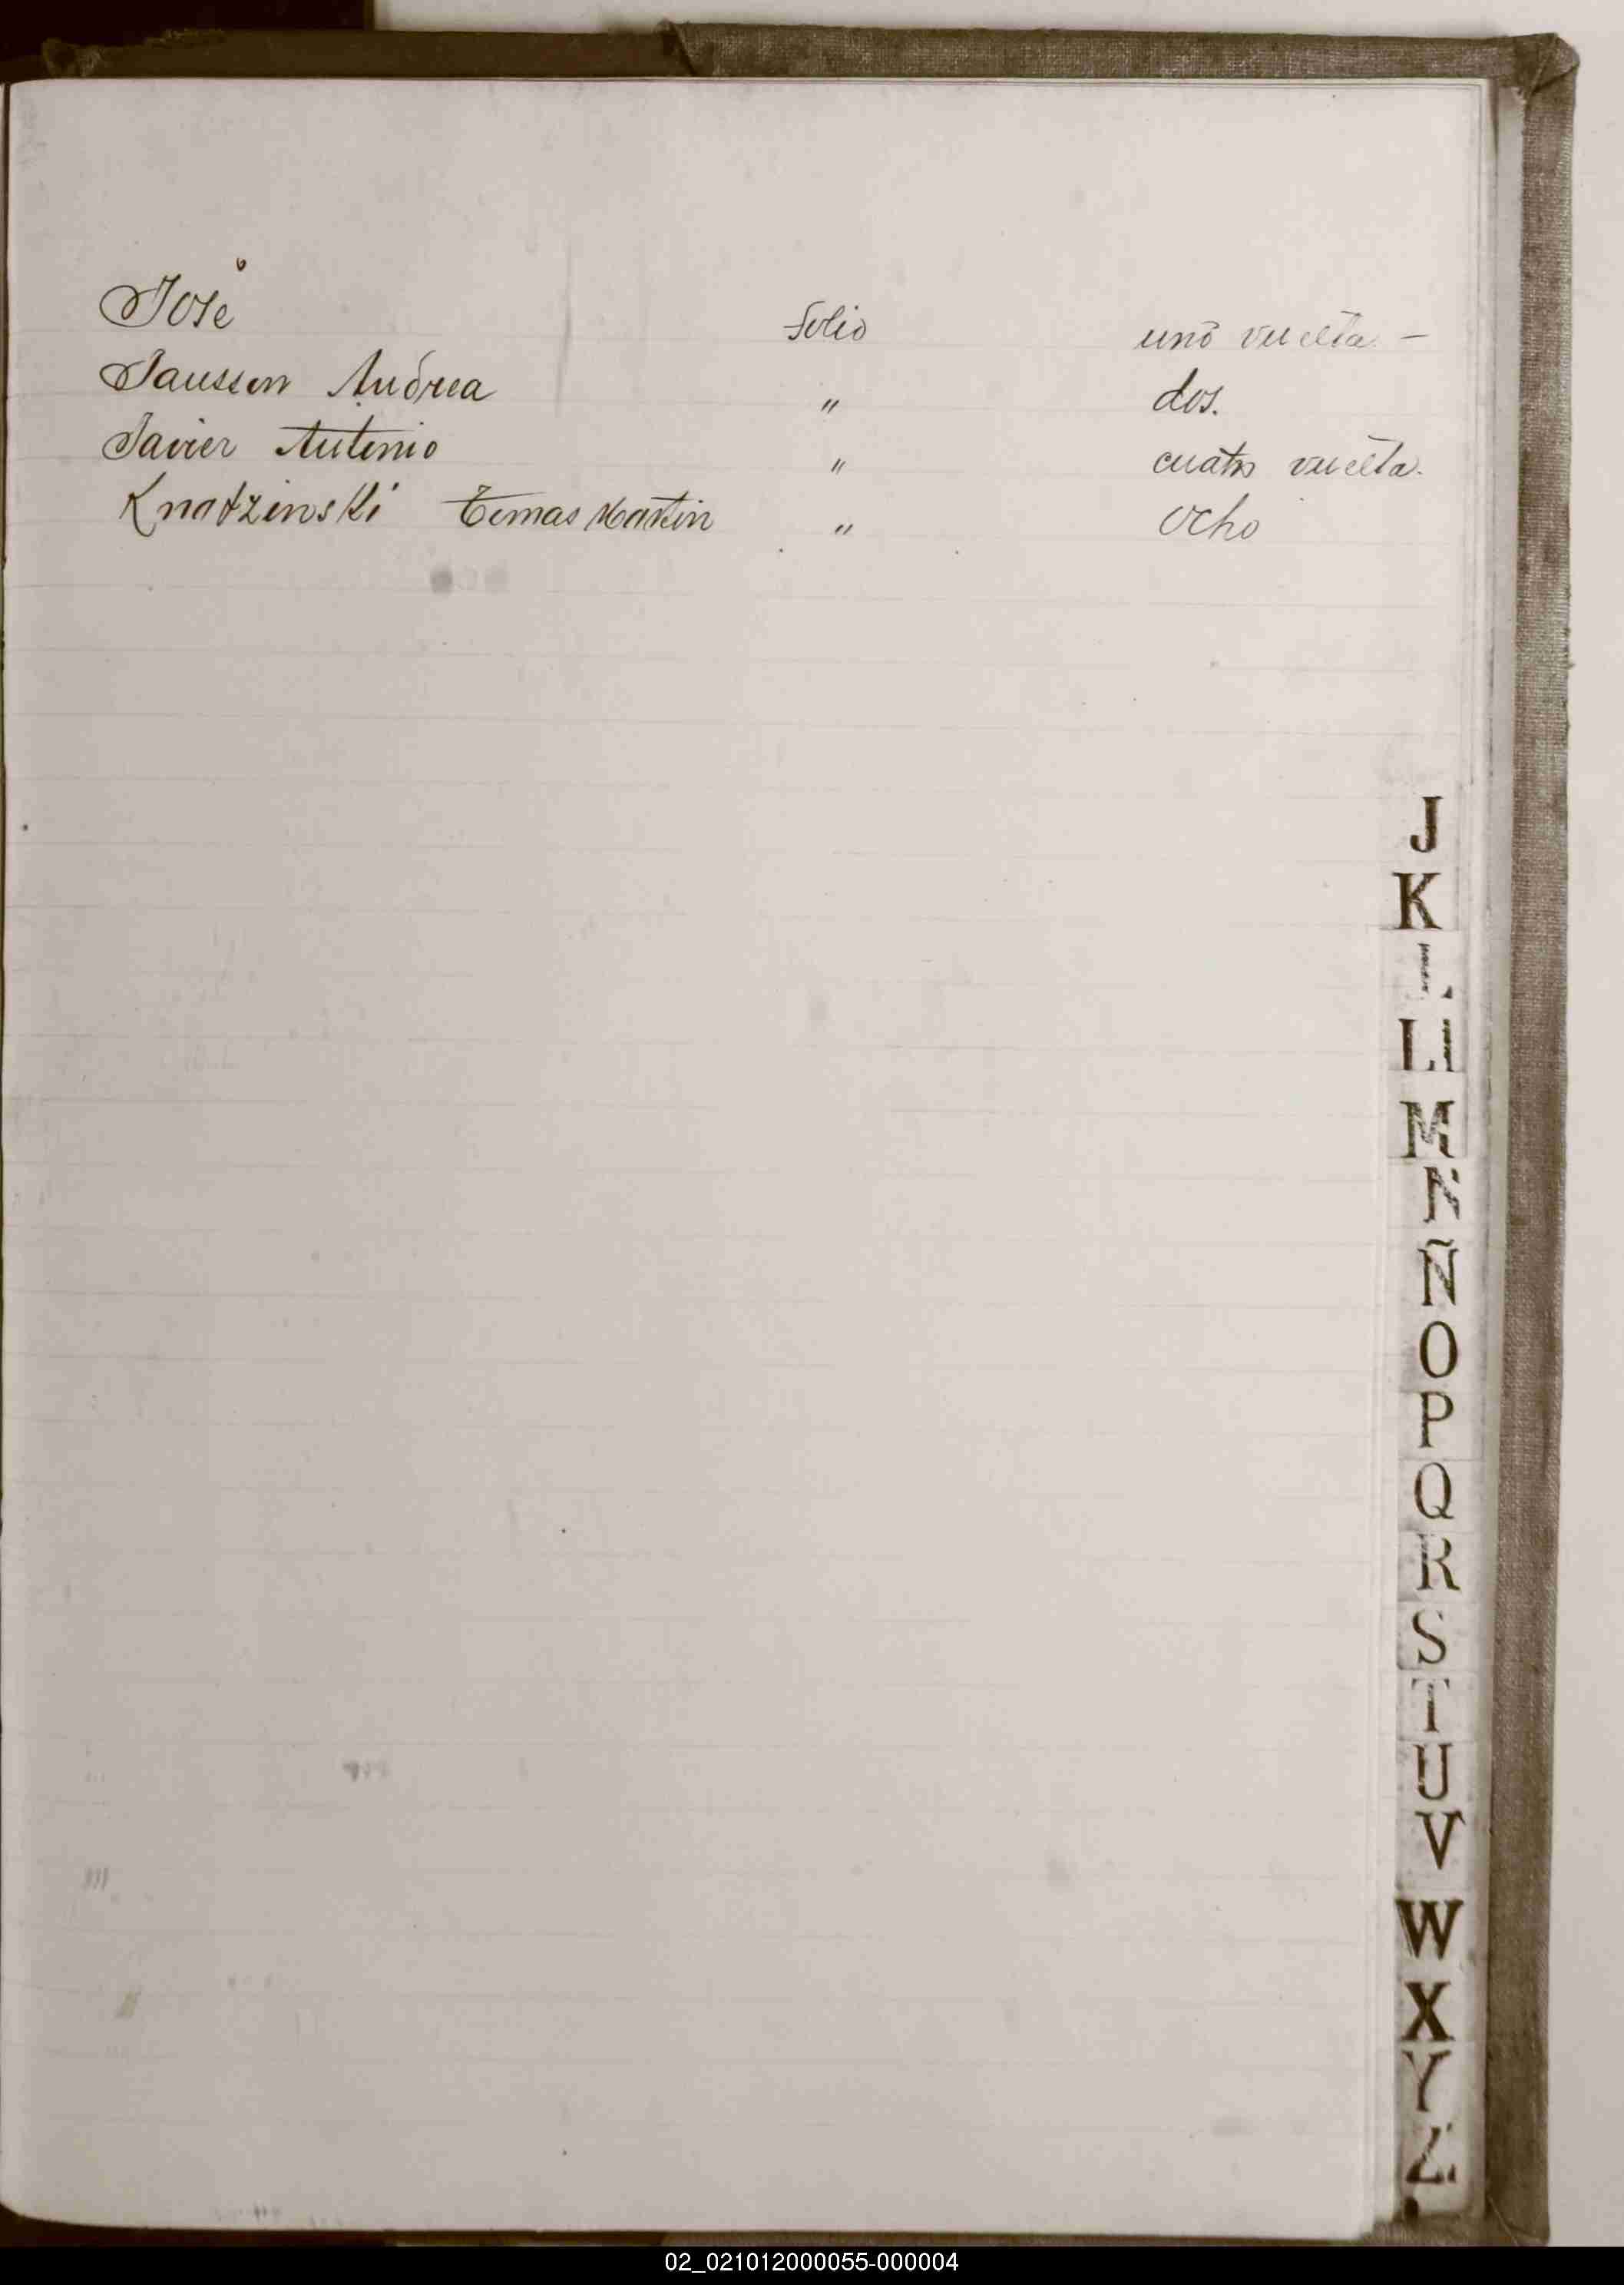 José folio uno vuelta. —
Janssen Andrea " dos.
Javier Antonio " cuatro vuelta.
Knatzinski Tomas Martin " ocho
J
K
L
Ll
M
N
Ñ
O
P
Q
R
S
T
U
V
W
X
Y
Z
02_021012000055-000004